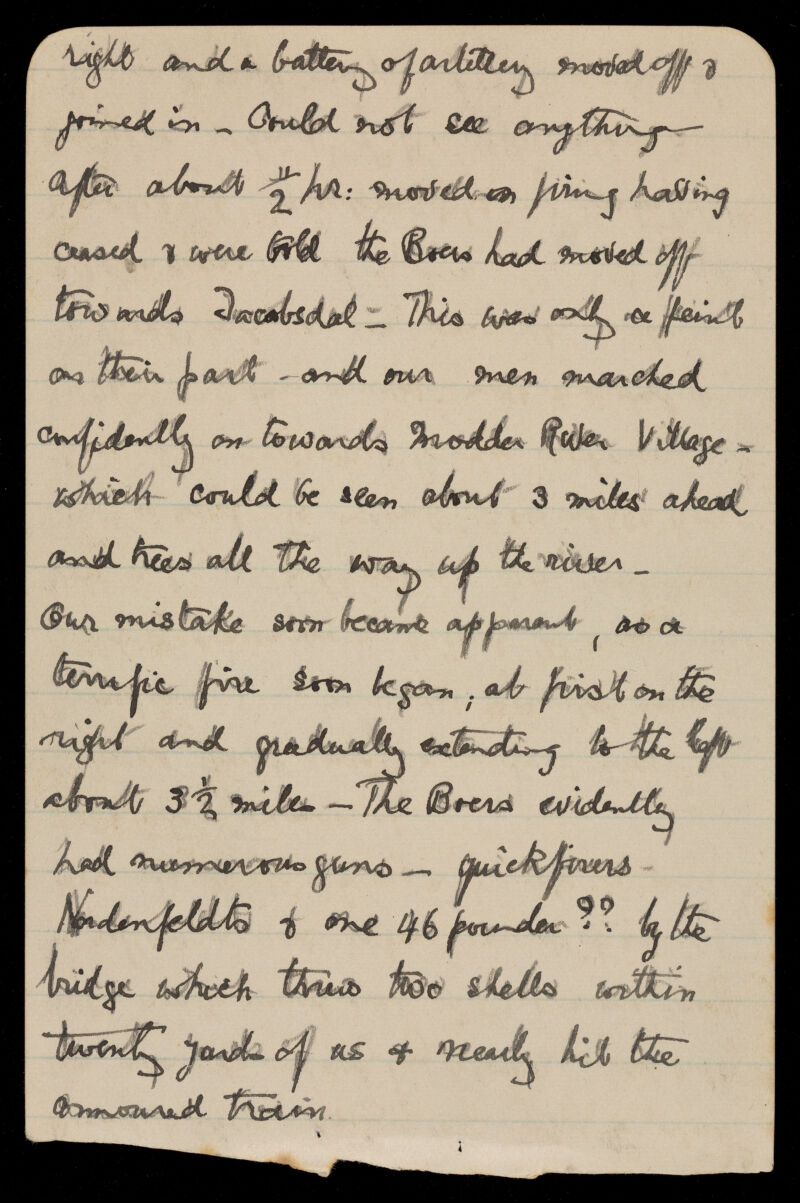 right and a battery of artillery moved off &
joined in - Could not see anything
After about ½ hr: moved on firing having
ceased & were told the Boers had moved off
towards Jacobsdal - This was only a feint
on their part - and our men marched
confidently on towards Modder River Village -
which could be seen about 3 miles ahead
and trees all the way up the river -
Our mistake soon became apparent, as a
terrific fire soon began, at first on the
right and gradually extending to the left
about 3½ miles - The Boers evidently
had numerous guns - quickfirers -
Nordenfeldts & one 46 pounder ?? by the
bridge which threw two shells within
twenty yards of us & nearly hit the
armoured train